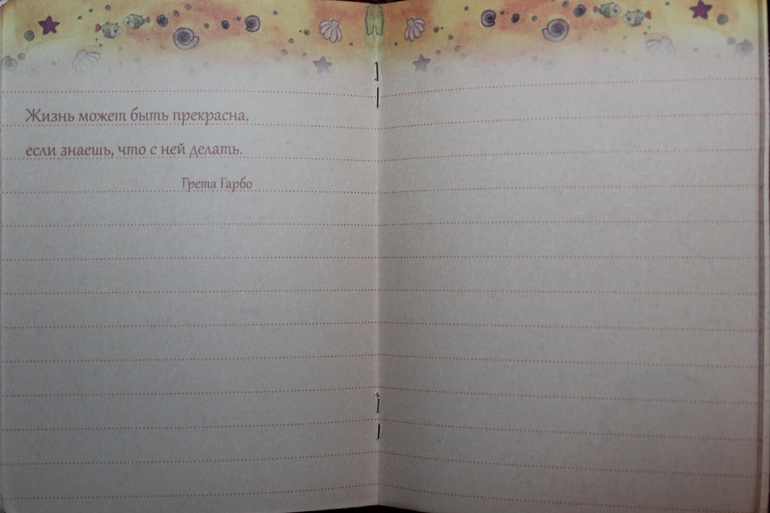 Жизнь может быть прекрасна,
если знаешь, что с ней делать.
Грета Гарбо